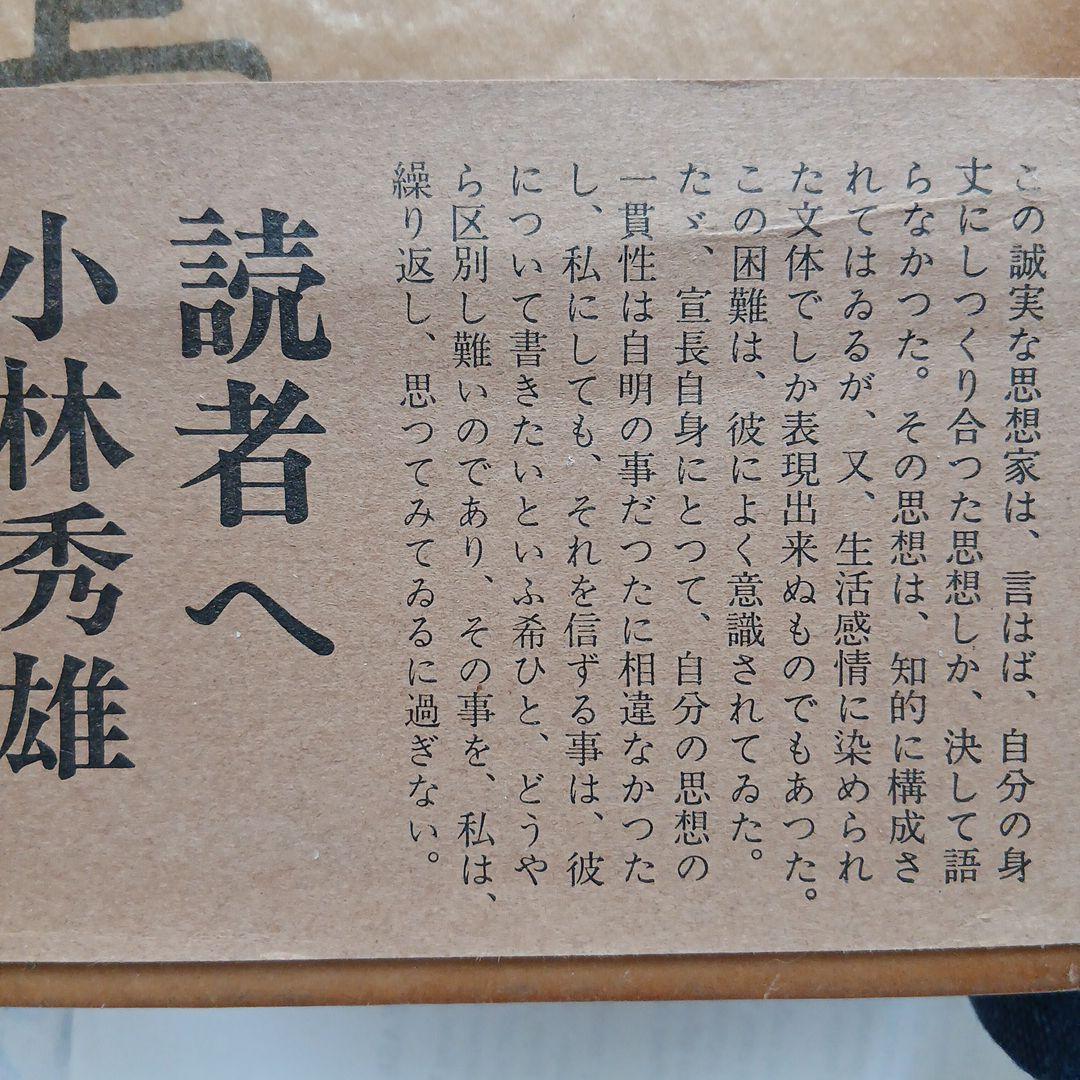 この誠実な思想家は、言はば、自分の身
丈にしつくり合つた思想しか、決して語
らなかつた。その思想は、知的に構成さ
れてはゐるが、又、生活感情に染められ
た文体でしか表現出来ぬものでもあつた。
この困難は、彼によく意識されてゐた。
たゞ、宣長自身にとつて、自分の思想の
一貫性は自明の事だつたに相違なかつた
し、私にしても、それを信ずる事は、彼
について書きたいといふ希ひと、どうや
ら区別し難いのであり、その事を、私は、
繰り返し、思つてみてゐるに過ぎない。
読者へ
小林秀雄